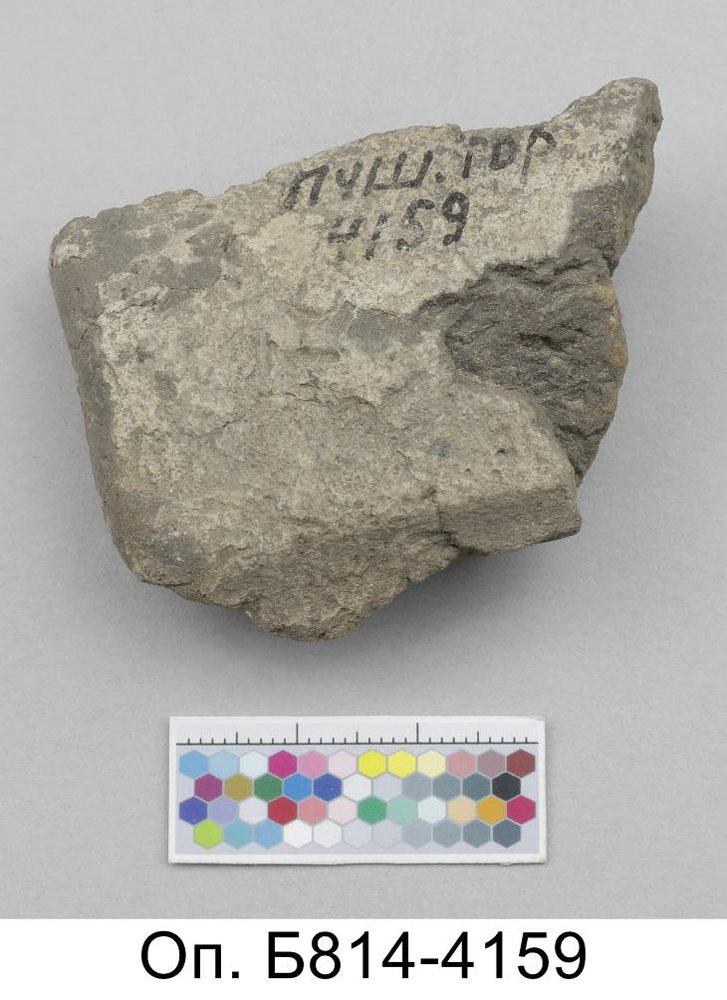 ПЧШ. ГОР
4159
Оп. Б814-4159